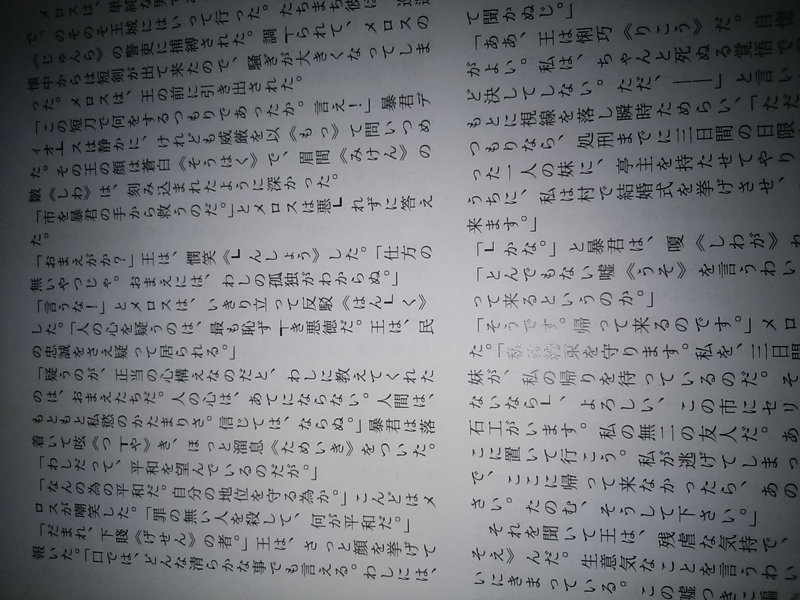 メロスは、単純な男で
で、のそのそ王城にはいって行った。たちまち彼は
《じゅんら》の警吏に捕縛された。調┳られて、メロスの
懐中からは短剣が出て来たので、騒ぎが大きくなってしま
った。メロスは、王の前に引き出された。
「この短刀で何をするつもりであったか。言え！」暴君デ
ィオ┻スは静かに、けれども威厳を以《もっ》て問いつめ
た。その王の顔は蒼白《そうはく》で、眉間《みけん》の
皺《しわ》は、刻み込まれたように深かった。
「市を暴君の手から救うのだ。」とメロスは悪┗れずに答え
た。
「おまえがか？」王は、憫笑《┗んしょう》した。「仕方の
無いやつじゃ。おまえには、わしの孤独がわからぬ。」
「言うな！」とメロスは、いきり立って反駁《はん┗く》
した。「人の心を疑うのは、最も恥ず┳き悪徳だ。王は、民
の忠誠をさえ疑って居られる。」
「疑うのが、正当の心構えなのだと、わしに教えてくれた
のは、おまえたちだ。人の心は、あてにならない。人間は、
もともと私慾のかたまりさ。信じては、ならぬ。」暴君は落
着いて呟《つ┳や》き、ほっと溜息《ためいき》をついた。
「わしだって、平和を望んでいるのだが。」
「なんの為の平和だ。自分の地位を守る為か。」こんどはメ
ロスが嘲笑した。「罪の無い人を殺して、何が平和だ。」
「だまれ、下賤《げせん》の者。」王は、さっと顔を挙げて
報いた。「口では、どんな清らかな事でも言える。わしには、
て聞かぬじ。」
「ああ、王は悧巧《りこう》だ。自惚
がよい。私は、ちゃんと死ぬる覚悟で
ど決してしない。ただ、――」と言い
もとに視線を落し瞬時ためらい、「ただ
つもりなら、処刑までに三日間の日限
った一人の妹に、亭主を持たせてやり
うちに、私は村で結婚式を挙げさせ、
来ます。」
「┗かな。」と暴君は、嗄《しわが》れ
「とんでもない嘘《うそ》を言うわい
って来るというのか。」
「そうです。帰って来るのです。」メロ
た。「私は約束を守ります。私を、三日間
妹が、私の帰りを待っているのだ。そ
ないなら┗、よろしい、この市にセリ
石工がいます。私の無二の友人だ。あ
こに置いて行こう。私が逃げてしまっ
で、ここに帰って来なかったら、あの
さい。たのむ、そうして下さい。」
それを聞いて王は、残虐な気持で、
そえ》んだ。生意気なことを言うわい
いにきまっている。この嘘つきに騙